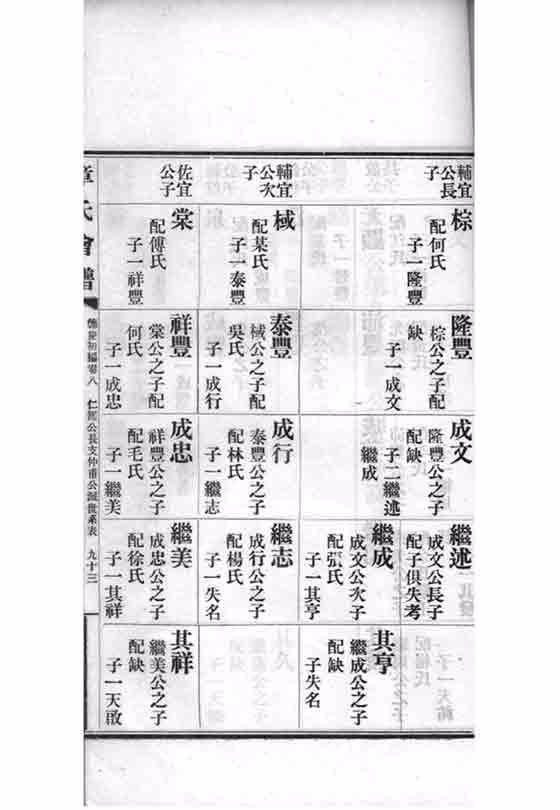 輔宜
公長
子
棕
配何氏
子一隆豐
輔宜
公次
子
棫
配某氏
子一泰豐
佐宜
公子
棠
配傅氏
子一祥豐
隆豐
棕公之子配
缺
子一成文
泰豐
棫公之子配
吳氏
子一成行
祥豐
棠公之子配
何氏
子一成忠
成文
隆豐公之子
配缺
子二繼述
繼成
成行
泰豐公之子
配林氏
子一繼志
成忠
祥豐公之子
配毛氏
子一繼美
繼述
成文公長子
配子俱失考
繼成
成文公次子
配張氏
子一其亨
繼志
成行公之子
配楊氏
子一失名
繼美
成忠公之子
配徐氏
子一其祥
其亨
繼成公之子
配缺
子失名
其祥
繼美公之子
配缺
子一天啟
章氏會譜
初編卷八
仁
公長支仲甫公派世系表
九十三